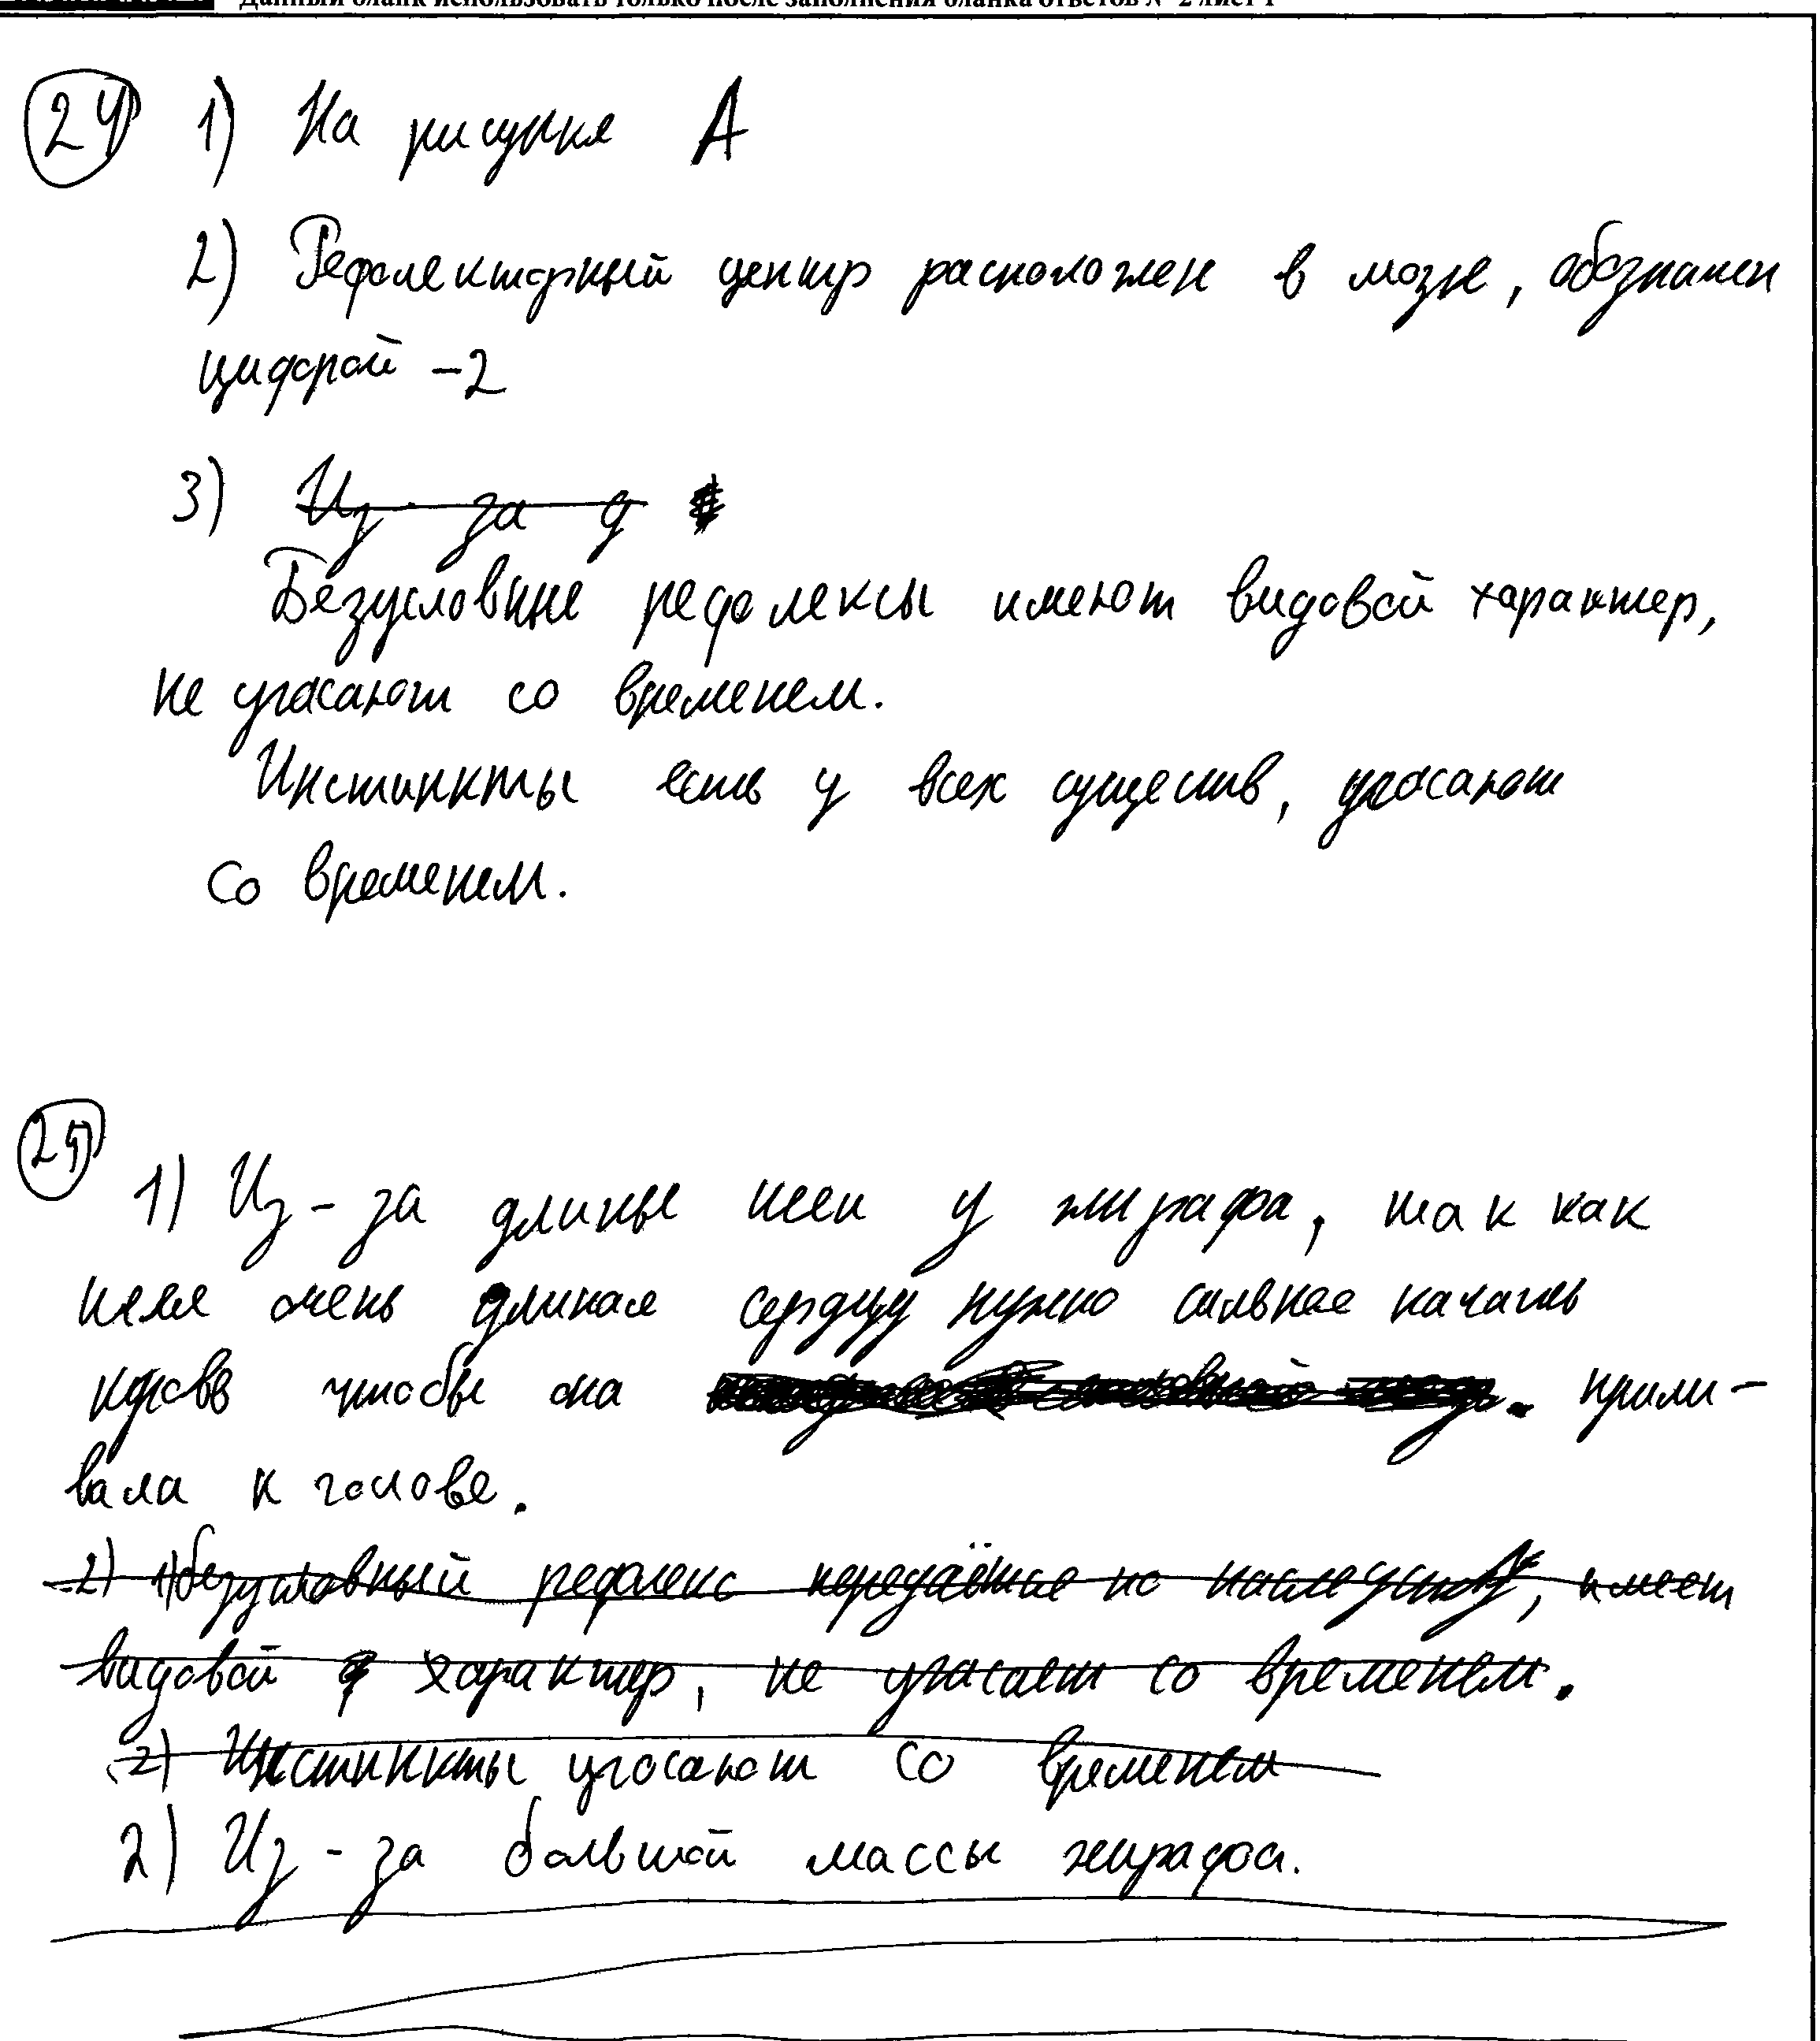 Данный бланк использовать только после заполнения бланка ответов № 2 лист 1
24 1) На рисунке А
2) Рефлекторный центр расположен в мозге, обозначен
цифрой -2
3) Из-за д
Безусловные рефлексы имеют видовой характер,
не угасают со временем.
Инстинкты есть у всех существ, угасают
со временем.
25
1) Из-за длины шеи у жирафа, так как
шея очень длиная сердцу нужно сильнее качать
кровь чтобы она прили-
вала к голове.
2) 1) безусловный рефлекс передаётся по наследству, имеет
видовой характер, не угасает со временем.
2) Инстинкты угасают со временем
2) Из-за большой массы жирафа.